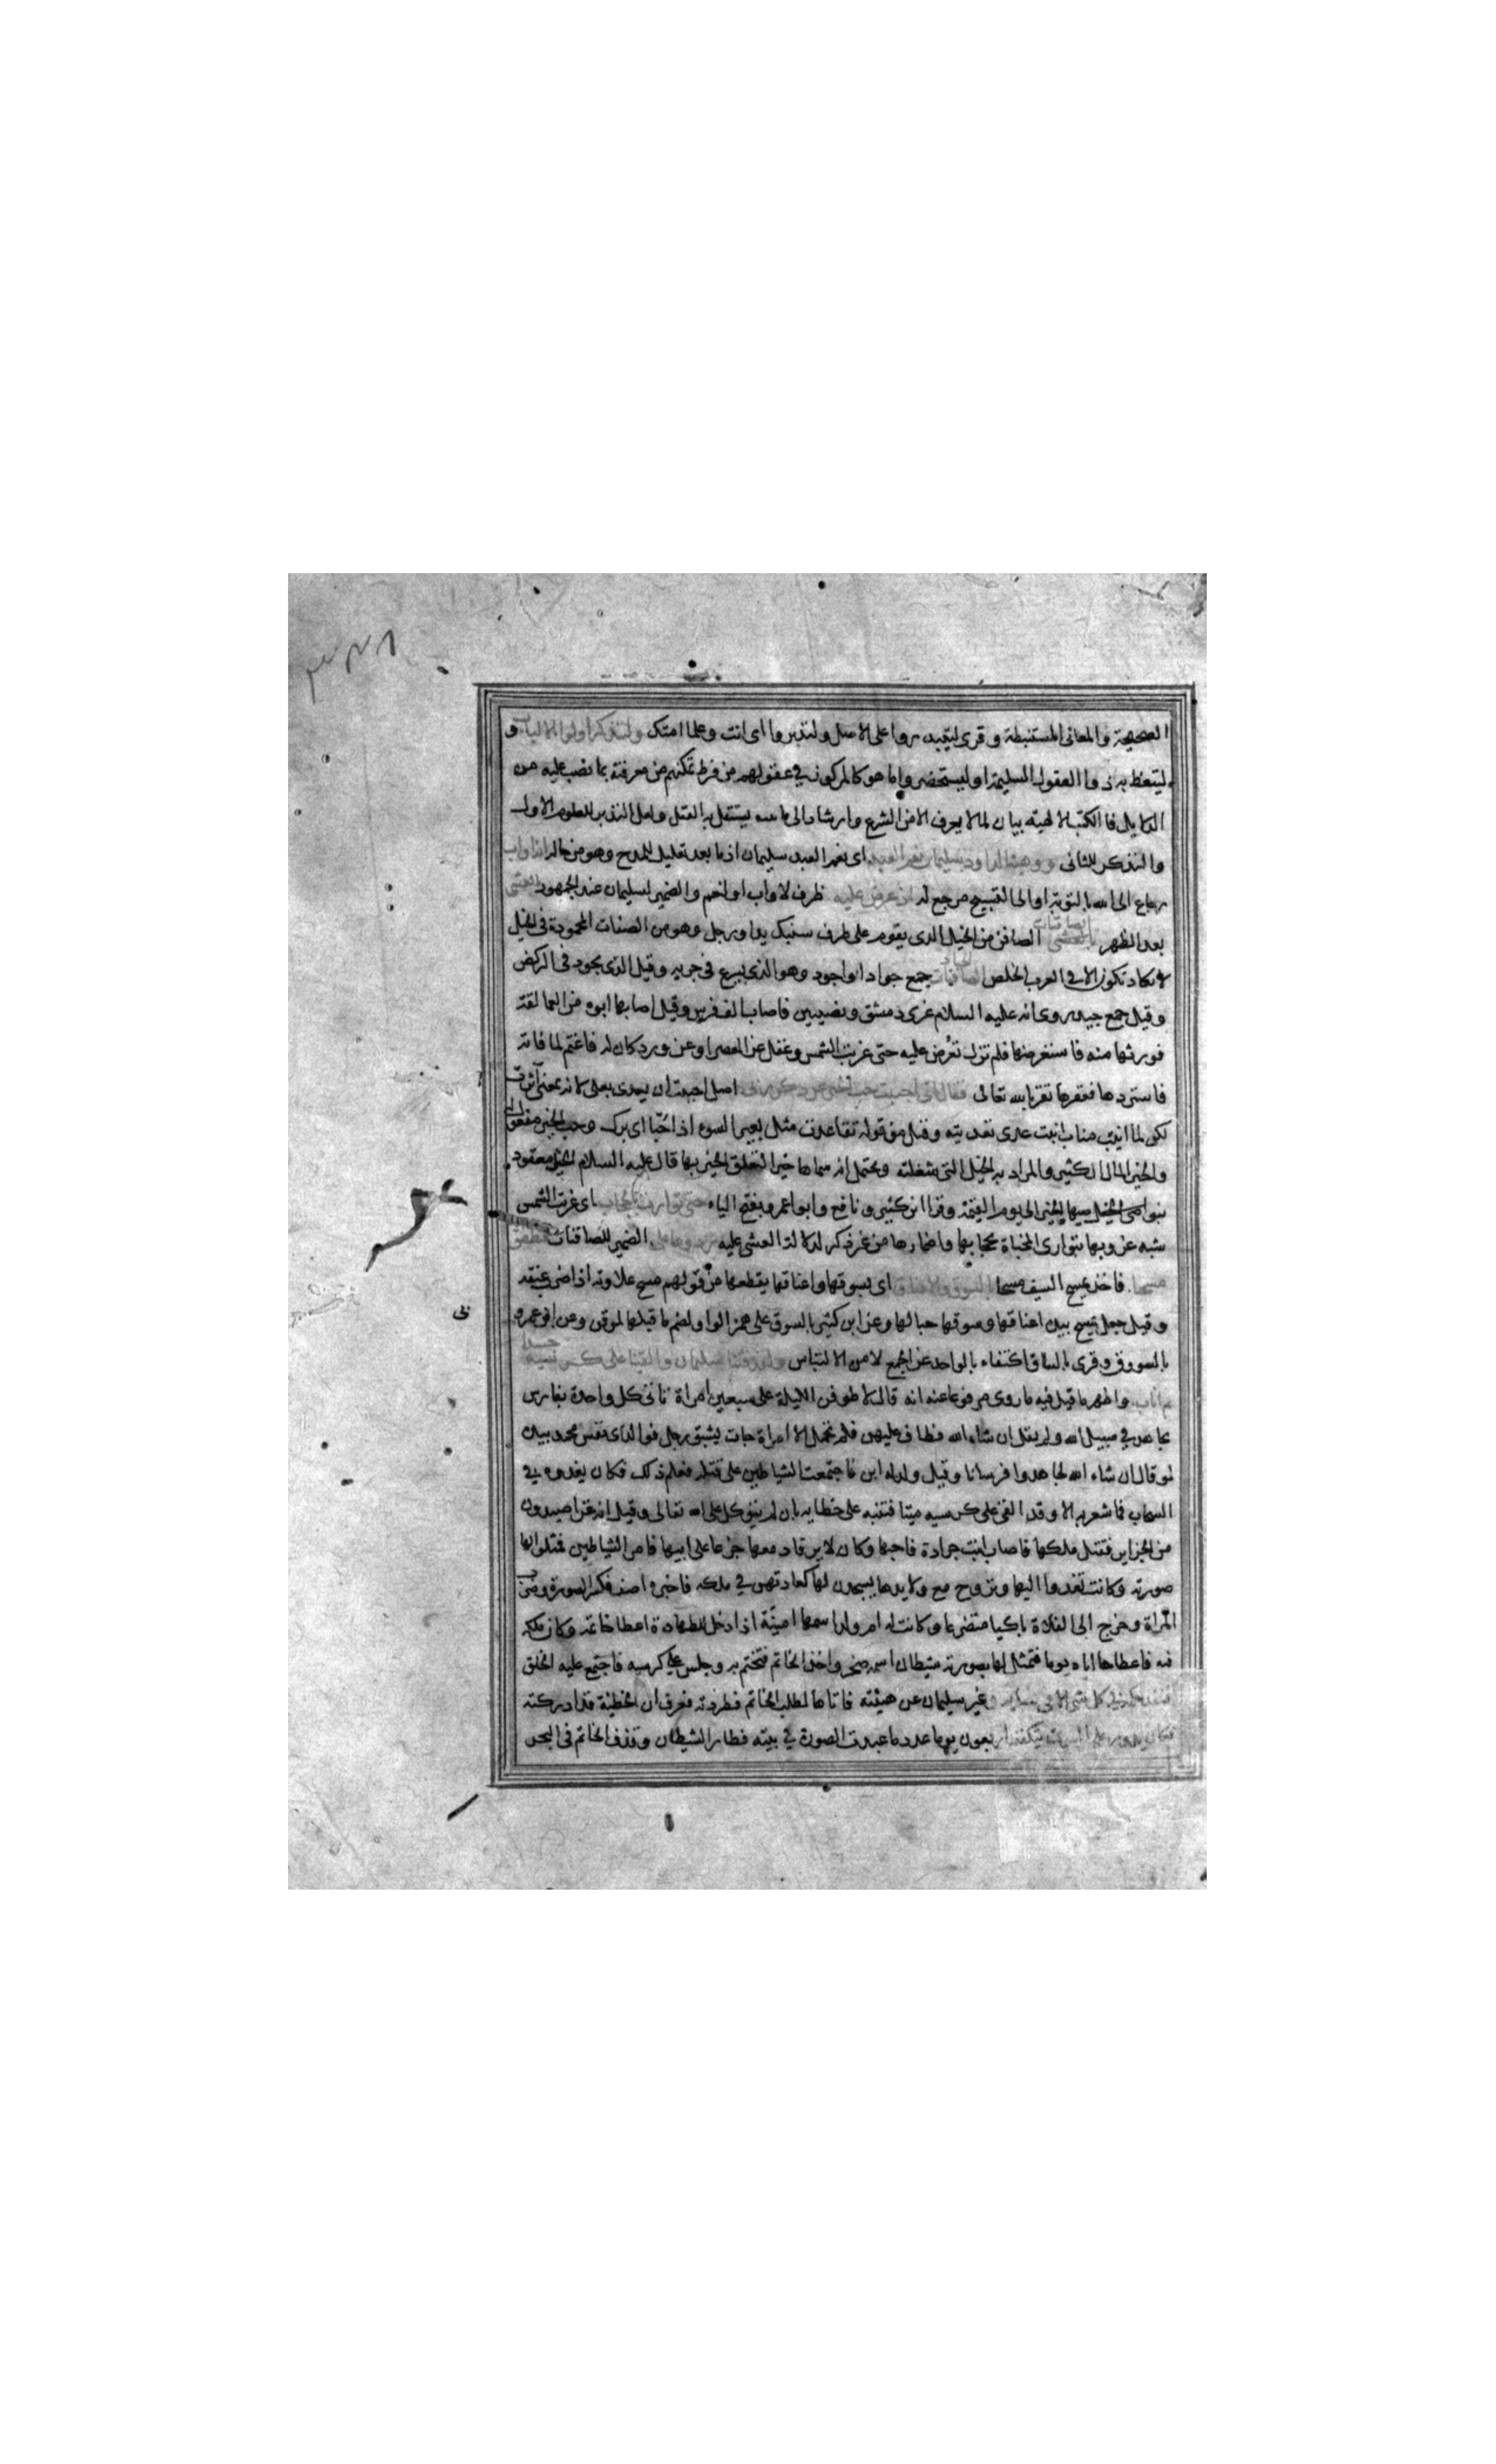 الصحيحة والمعانى المستنبطة وقرى ليتدبروا على الاصل ولتدبروا اى انت وعلما امتك وليتذكر اولوا الالباب و
ليتعظ به ذوا العقول السليمة او ليستحضروا ما هو كالمركوز فى عقولهم من فرط تمكنهم من معرفته بما نصب عليه من
الدلايل فان الكتب الالهية بيان لما لا يعرف الا من الشرع وارشاد الى ما يستقل به العقل ولعل التدبر للعلوم الاول
والتذكر للثانى ووهبنا لداود سليمان نعم العبد اى نعم العبد سليمان اذ ما بعده تعليل للمدح وهو من حاله انه اواب
رجاع الى الله بالتوبة او الى التسبيح مرجع له اذ عرض عليه ظرف لاواب او لنعم والضمير لسليمان عند الجمهور بالعشى
بعد الظهر الصافنات الصافن من الخيل الذى يقوم على طرف سنبك يد او رجل وهو من الصفات المحمودة فى الخيل
لا تكاد تكون الا فى العرب الخلص الجياد جمع جواد او جود وهو الذى يسرع فى جريه وقيل الذى يجود فى الركض
وقيل جمع جيد روى انه عليه السلام غزى دمشق ونصيبين فاصاب الف فرس وقيل اصابها ابوه من العمالقة
فورثها منه فاستعرضها فلم تزل تعرض عليه حتى غربت الشمس وغفل عن العصر او عن ورد كان له فاغتم لما فاته
فاستردها فعقرها تقربا لله تعالى فقال انى احببت حب الخير عن ذكر ربى اصل احببت ان يعدى بعلى لانه بمعنى آثرت
لكن لما انيب مناب انبت عدى تعديته وقيل هو بمعنى تقاعدت مثل بعير السوء اذ احبا اى برك وحب الخير مفعول له
والخير المال الكثير والمراد به الخيل التى شغلته ويحتمل انه سماها خيرا لتعلق الخير بها قال عليه السلام الخيل معقود
بنواصيها الخير الى يوم القيمة وقرا ابن كثير ونافع وابو عمرو بفتح الياء حتى توارت بالحجاب اى غربت الشمس
شبه غروبها بتوارى المخباة بحجابها واضمارها من غير ذكر لدلالة العشى عليه ردوها على الضمير للصافنات فطفق
مسحا فاخذ يمسح السيف مسحا بالسوق والاعناق اى بسوقها واعناقها يقطعها من قولهم مسح علاوته اذا ضرب عنقه
وقيل جعل يمسح بيده اعناقها وسوقها حبا لها وعن ابن كثير بالسوق على همز الواو لضم ما قبلها كموقن وعن ابو عمرو
بالسووق وقرى بالساق اكتفاء بالواحد عن الجمع لامن الالتباس ولقد فتنا سليمان والقينا على كرسيه جسدا
ثم اناب واظهر ما قيل فيه ما روى مرفوعا عنه انه قال لاطوفن الليلة على سبعين امراة تاتى كل واحدة بفارس
يجاهد فى سبيل الله ولم يقل ان شاء الله فطاف عليهن فلم تحمل الا امراة جات بشق رجل فوالذى نفس محمد بيده
لو قال ان شاء الله لجاهدوا فرسانا وقيل ولد له ابن فاجتمعت الشياطين على قتله فعلم ذلك فكان يغدوه فى
السحاب فما شعر به الا وقد القى على كرسيه ميتا فتنبه على خطايه بان لم يتوكل على الله تعالى وقيل انه غزا صيدون
من الجزاير فقتل ملكها فاصاب ابنته جرادة فاحبها وكان لا يرقا دمعها جزعا على ابيها فامر الشياطين فمثلوا لها
صورته وكانت تغدوا اليها وتروح مع ولايدها يسجدن لها كعادتهن فى ملكه فاخبره اصف فكسر الصورة وضرب
المراة وخرج الى الفلاة باكيا متضرعا وكانت له ام ولد اسمها امينة اذا دخل للطهارة اعطاها خاتمه وكان ملكه
فيه فاعطاها اياه يوما فتمثل لها بصورته شيطان اسمه صخر واخذ الخاتم فتختم به وجلس على كرسيه فاجتمع عليه الخلق
ونفذ حكمه فى كل شى الا فى نسايه وغير سليمان عن هيئته فاتاها لطلب الخاتم فطردته فعرف ان الخطيئة قد ادركته
فكان يدور على البيوت يتكفف اربعون يوما عدد ما عبدت الصورة فى بيته فطار الشيطان وقذف الخاتم فى البحر